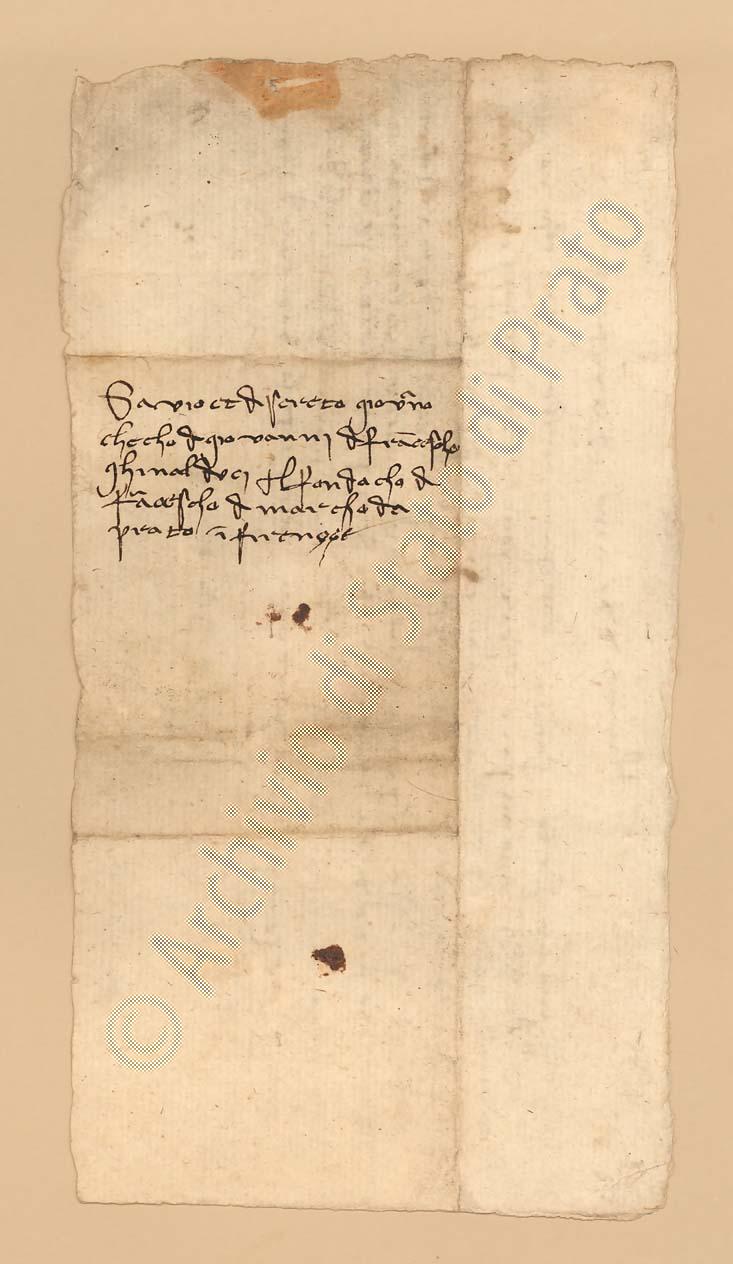 Savio et discreto giovano
checho di giovanni di francescho
ghinalducci al fondacho di
franceschο di marcho da
prato in firençe
© Archivio di Stato di Prato